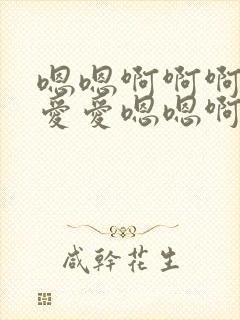 嗯嗯啊啊啊
爱爱嗯嗯啊
咸幹花生